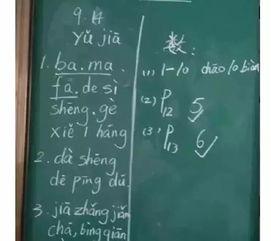 9.14
Yǔ jiā
1. ba.ma.
fā.de sì
shēng.gè
xiě 1 háng
2. dà shēng
dē pīng dú.
3. jiā zhǎng jiǎn
chá, bìng qiān
数:
(1) 1-10 chāo 10 biàn
(2) P12 5
(3) P13 6